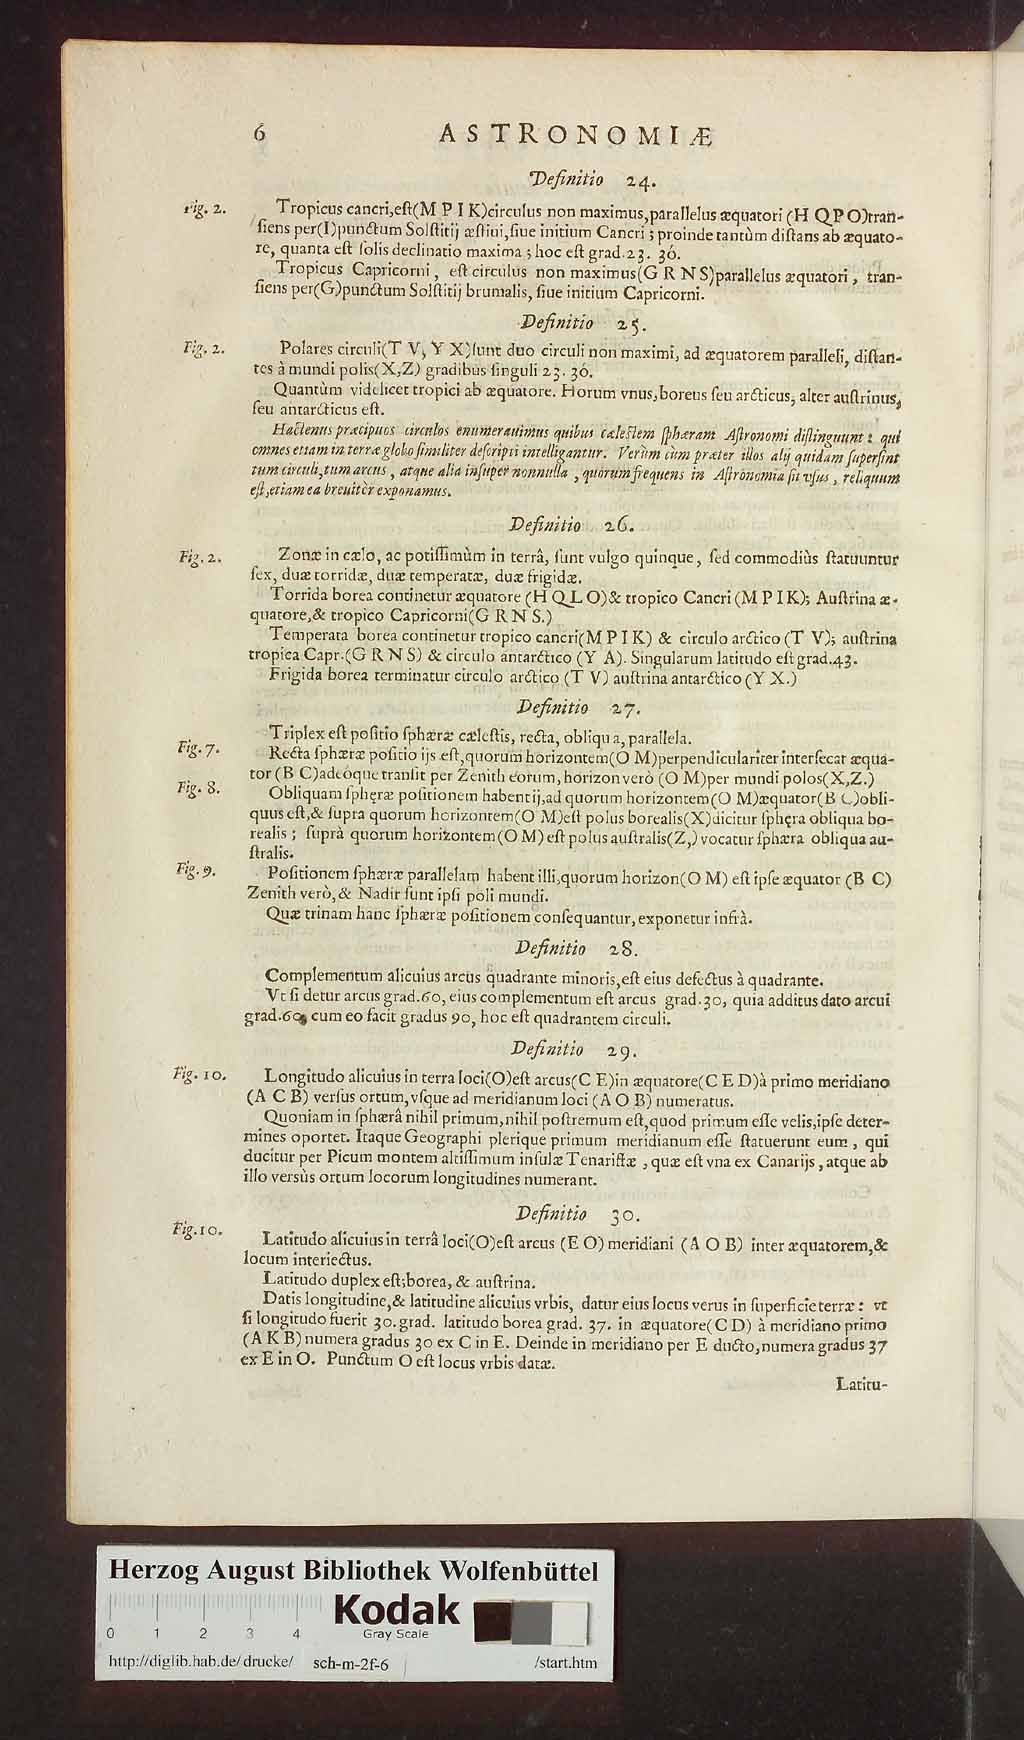 6 ASTRONOMIÆ
Definitio 24.
Fig. 2. Tropicus cancri,eſt(M P I K)circulus non maximus,parallelus æquatori (H Q P O)tran-
ſiens per(I)punctum Solſtitij æſtiui,ſiue initium Cancri ; proinde tantùm diſtans ab æquato-
re, quanta eſt ſolis declinatio maxima ; hoc eſt grad. 23. 30.
Tropicus Capricorni, eſt circulus non maximus(G R N S)parallelus æquatori, tran-
ſiens per(G)punctum Solſtitij brumalis, ſiue initium Capricorni.
Definitio 25.
Fig. 2. Polares circuli(T V, Y X)ſunt duo circuli non maximi, ad æquatorem paralleli, diſtan-
tes à mundi polis(X,Z) gradibus ſinguli 23. 30.
Quantùm videlicet tropici ab æquatore. Horum vnus,boreus ſeu arcticus, alter auſtrinus,
ſeu antarcticus eſt.
Hactenus præcipuos circulos enumerauimus quibus cæleſtem ſphæram Aſtronomi diſtinguunt : qui
omnes etiam in terræ globo ſimiliter deſcripti intelliguntur. Verùm cùm præter illos alij quidam ſuperſint
tum circuli,tum arcus, atque alia inſuper nonnulla, quorum frequens in Aſtronomia ſit vſus, reliquum
eſt,etiam ea breuitèr exponamus.
Definitio 26.
Fig. 2. Zonæ in cælo, ac potiſſimùm in terrâ, ſunt vulgo quinque, ſed commodiùs ſtatuuntur
ſex, duæ torridæ, duæ temperatæ, duæ frigidæ.
Torrida borea continetur æquatore (H Q L O)& tropico Cancri (M P I K); Auſtrina æ-
quatore,& tropico Capricorni(G R N S.)
Temperata borea continetur tropico cancri(M P I K) & circulo arctico (T V); auſtrina
tropica Capr.(G R N S) & circulo antarctico (Y A). Singularum latitudo eſt grad.43.
Frigida borea terminatur circulo arctico (T V) auſtrina antarctico (Y X.)
Definitio 27.
Triplex eſt poſitio ſphæræ cæleſtis, recta, obliqua, parallela.
Fig. 7. Recta ſphæræ poſitio ijs eſt,quorum horizontem(O M)perpendiculariter interſecat æqua-
tor (B C)adeòque tranſit per Zenith eorum, horizon verò (O M)per mundi polos(X,Z.)
Fig. 8. Obliquam ſphęræ poſitionem habent ij,ad quorum horizontem(O M)æquator(B C)obli-
quus eſt,& ſupra quorum horizontem(O M)eſt polus borealis(X)dicitur ſphęra obliqua bo-
realis ; ſuprà quorum horizontem(O M) eſt polus auſtralis(Z,) vocatur ſphæra obliqua au-
ſtralis.
Fig. 9. Poſitionem ſphæræ parallelam habent illi,quorum horizon(O M) eſt ipſe æquator (B C)
Zenith verò,& Nadir ſunt ipſi poli mundi.
Quæ trinam hanc ſphæræ poſitionem conſequantur,exponetur infrà.
Definitio 28.
Complementum alicuius arcus quadrante minoris,eſt eius defectus à quadrante.
Vt ſi detur arcus grad.60, eius complementum eſt arcus grad.30, quia additus dato arcui
grad.60, cum eo facit gradus 90, hoc eſt quadrantem circuli.
Definitio 29.
Fig. 10. Longitudo alicuius in terra loci(O)eſt arcus(C E)in æquatore(C E D)à primo meridiano
(A C B) verſus ortum,vſque ad meridianum loci (A O B) numeratus.
Quoniam in ſphærâ nihil primum,nihil poſtremum eſt,quod primum eſſe velis,ipſe deter-
mines oportet. Itaque Geographi plerique primum meridianum eſſe ſtatuerunt eum, qui
ducitur per Picum montem altiſſimum inſulæ Tenariffæ, quæ eſt vna ex Canarijs, atque ab
illo versùs ortum locorum longitudines numerant.
Definitio 30.
Fig. 10. Latitudo alicuius in terrâ loci(O)eſt arcus (E O) meridiani (A O B) inter æquatorem,&
locum interiectus.
Latitudo duplex eſt;borea, & auſtrina.
Datis longitudine,& latitudine alicuius vrbis, datur eius locus verus in ſuperficie terræ : vt
ſi longitudo fuerit 30.grad. latitudo borea grad. 37. in æquatore(C D) à meridiano primo
(A K B) numera gradus 30 ex C in E. Deinde in meridiano per E ducto,numera gradus 37
ex E in O. Punctum O eſt locus vrbis datæ.
Latitu-
Herzog August Bibliothek Wolfenbüttel
Kodak
0 1 2 3 4 Gray Scale
http://diglib.hab.de/drucke/ sch-m-2f-6 /start.htm